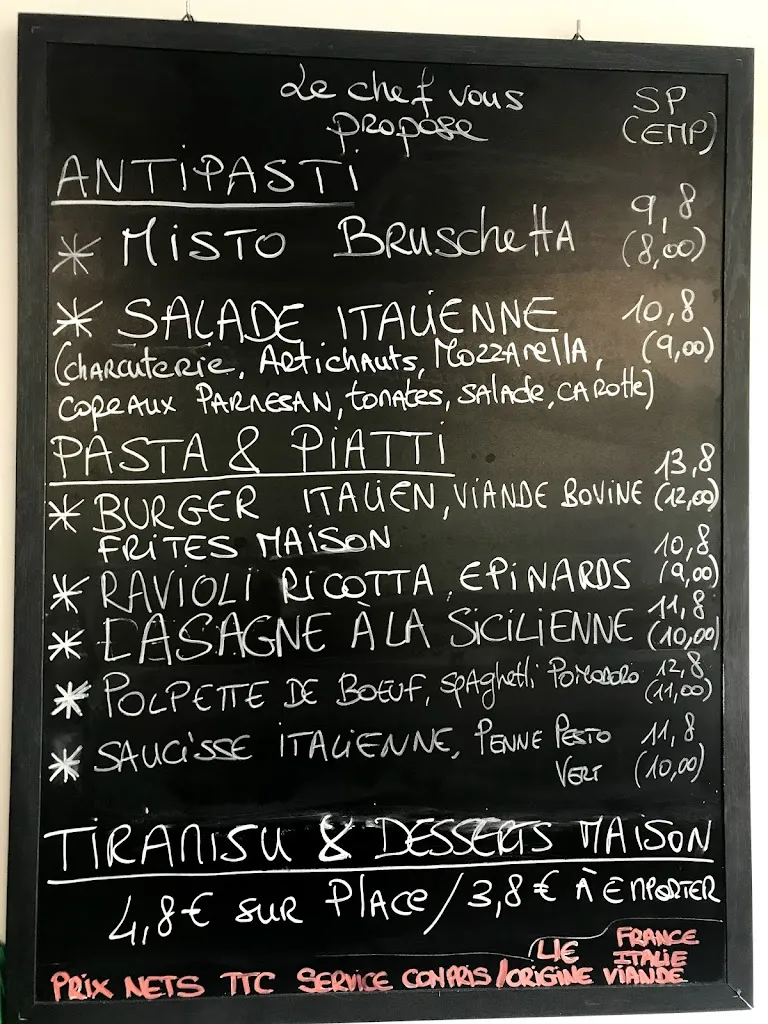 Le chef vous
propose
SP
(EMP)
ANTIPASTI
* MISTO BRUSCHETTA 9,8
(8,00)
* SALADE ITALIENNE 10,8
(CHARCUTERIE, ARTICHAUTS, MOZZARELLA, (9,00)
COPEAUX PARMESAN, tomates, SALADE, CAROTTE)
PASTA & PIATTI
13,8
* BURGER ITALIEN, VIANDE BOVINE (12,00)
FRITES MAISON
10,8
* RAVIOLI RICOTTA, EPINARDS (9,00)
11,8
* LASAGNE À LA SICILIENNE (10,00)
* POLPETTE DE BOEUF, SPAGHETTI POMODORO 12,8
(11,00)
* SAUCISSE ITALIENNE, PENNE PESTO 11,8
VERT (10,00)
TIRAMISU & DESSERTS MAISON
4,8€ SUR PLACE / 3,8€ À EMPORTER
UE FRANCE
ITALIE
PRIX NETS TTC SERVICE COMPRIS / ORIGINE VIANDE